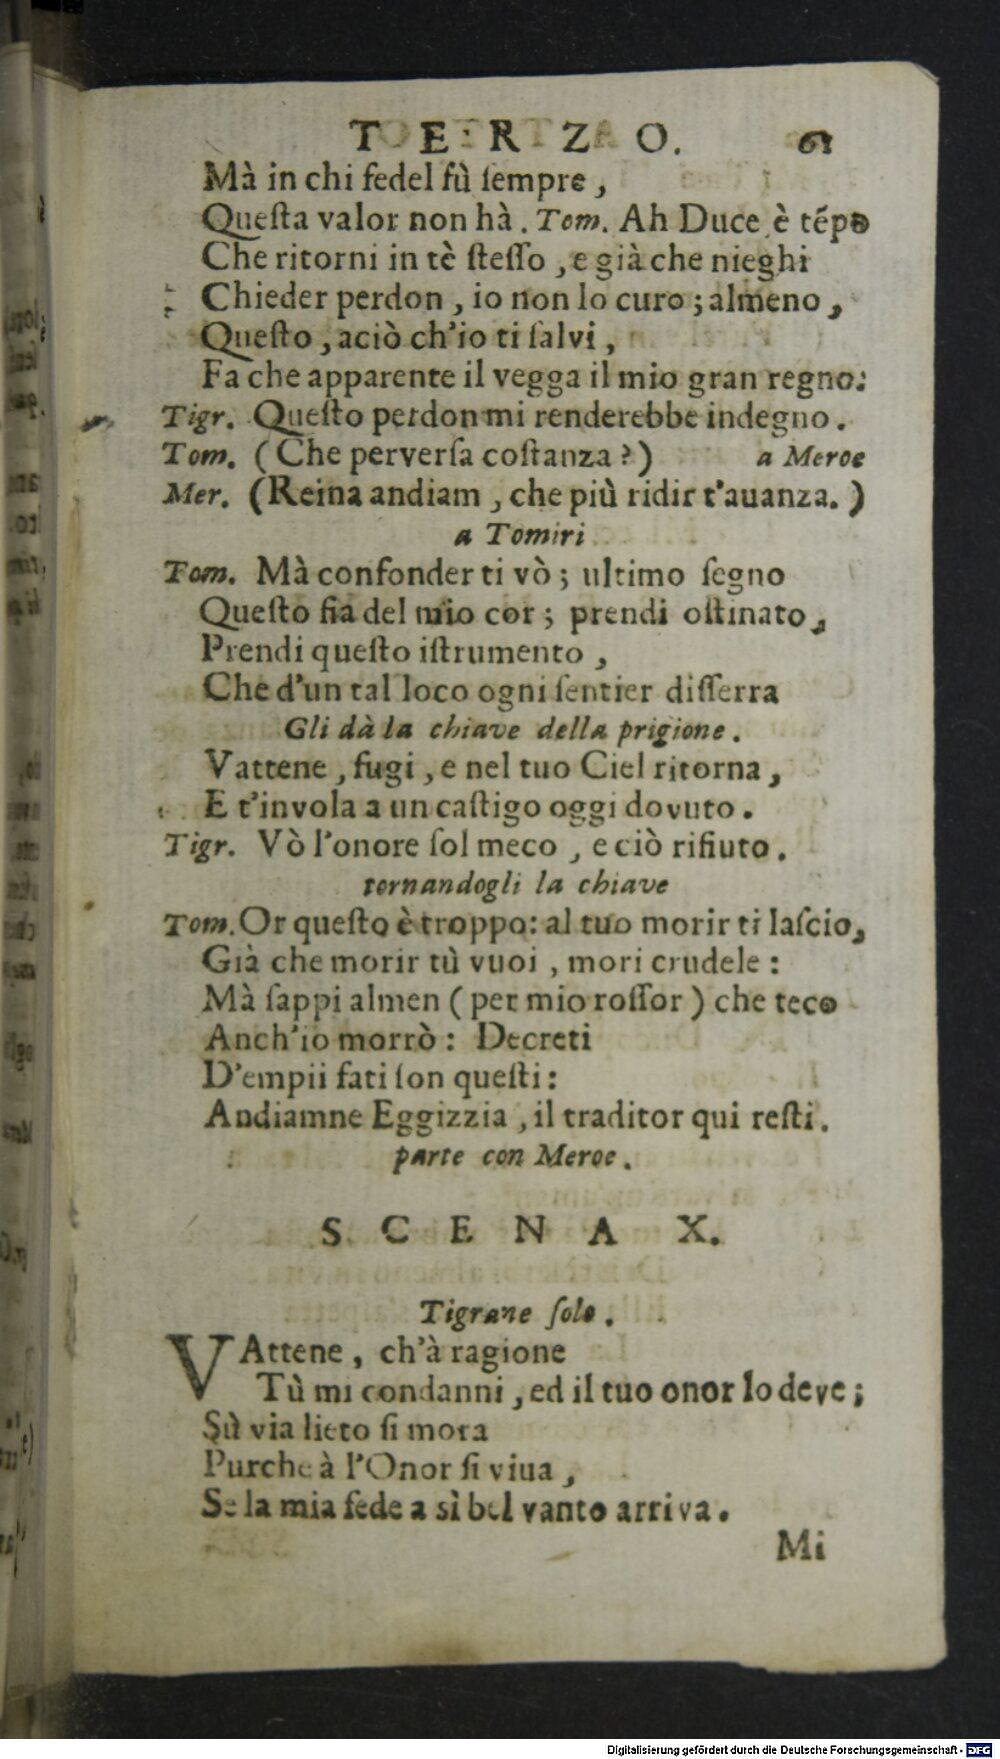 TERZO. 61
Mà in chi fedel fù ſempre,
Queſta valor non hà. Tom. Ah Duce è tẽpo
Che ritorni in tè ſteſſo, e già che nieghi
Chieder perdon, io non lo curo; almeno,
Queſto, aciò ch'io ti ſalvi,
Fa che apparente il vegga il mio gran regno:
Tigr. Queſto perdon mi renderebbe indegno.
Tom. (Che perverſa coſtanza?) a Meroe
Mer. (Reina andiam, che più ridir t'auanza.)
a Tomiri
Tom. Mà confonder ti vò; ultimo ſegno
Queſto fia del mio cor; prendi oſtinato,
Prendi queſto iſtrumento,
Che d'un tal loco ogni ſentier diſſerra
Gli dà la chiave della prigione.
Vattene, fugi, e nel tuo Ciel ritorna,
E t'invola a un caſtigo oggi dovuto.
Tigr. Vò l'onore ſol meco, e ciò rifiuto.
tornandogli la chiave
Tom. Or queſto è troppo: al tuo morir ti laſcio,
Già che morir tù vuoi, mori crudele:
Mà ſappi almen (per mio roſſor) che teco
Anch'io morrò: Decreti
D'empii fati ſon queſti:
Andiamne Eggizzia, il traditor qui reſti.
parte con Meroe.
SCENA X.
Tigrane ſolo.
VAttene, ch'à ragione
Tù mi condanni, ed il tuo onor lo deve;
Sù via lieto ſi mora
Purche à l'Onor ſi viua,
Se la mia fede a sì bel vanto arriva.
Mi
Digitalisierung gefördert durch die Deutsche Forschungsgemeinschaft - DFG